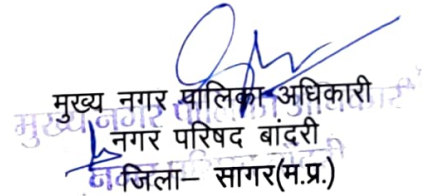 मुख्य नगर पालिका अधिकारी
नगर परिषद बांदरी
जिला– सागर(म.प्र.)